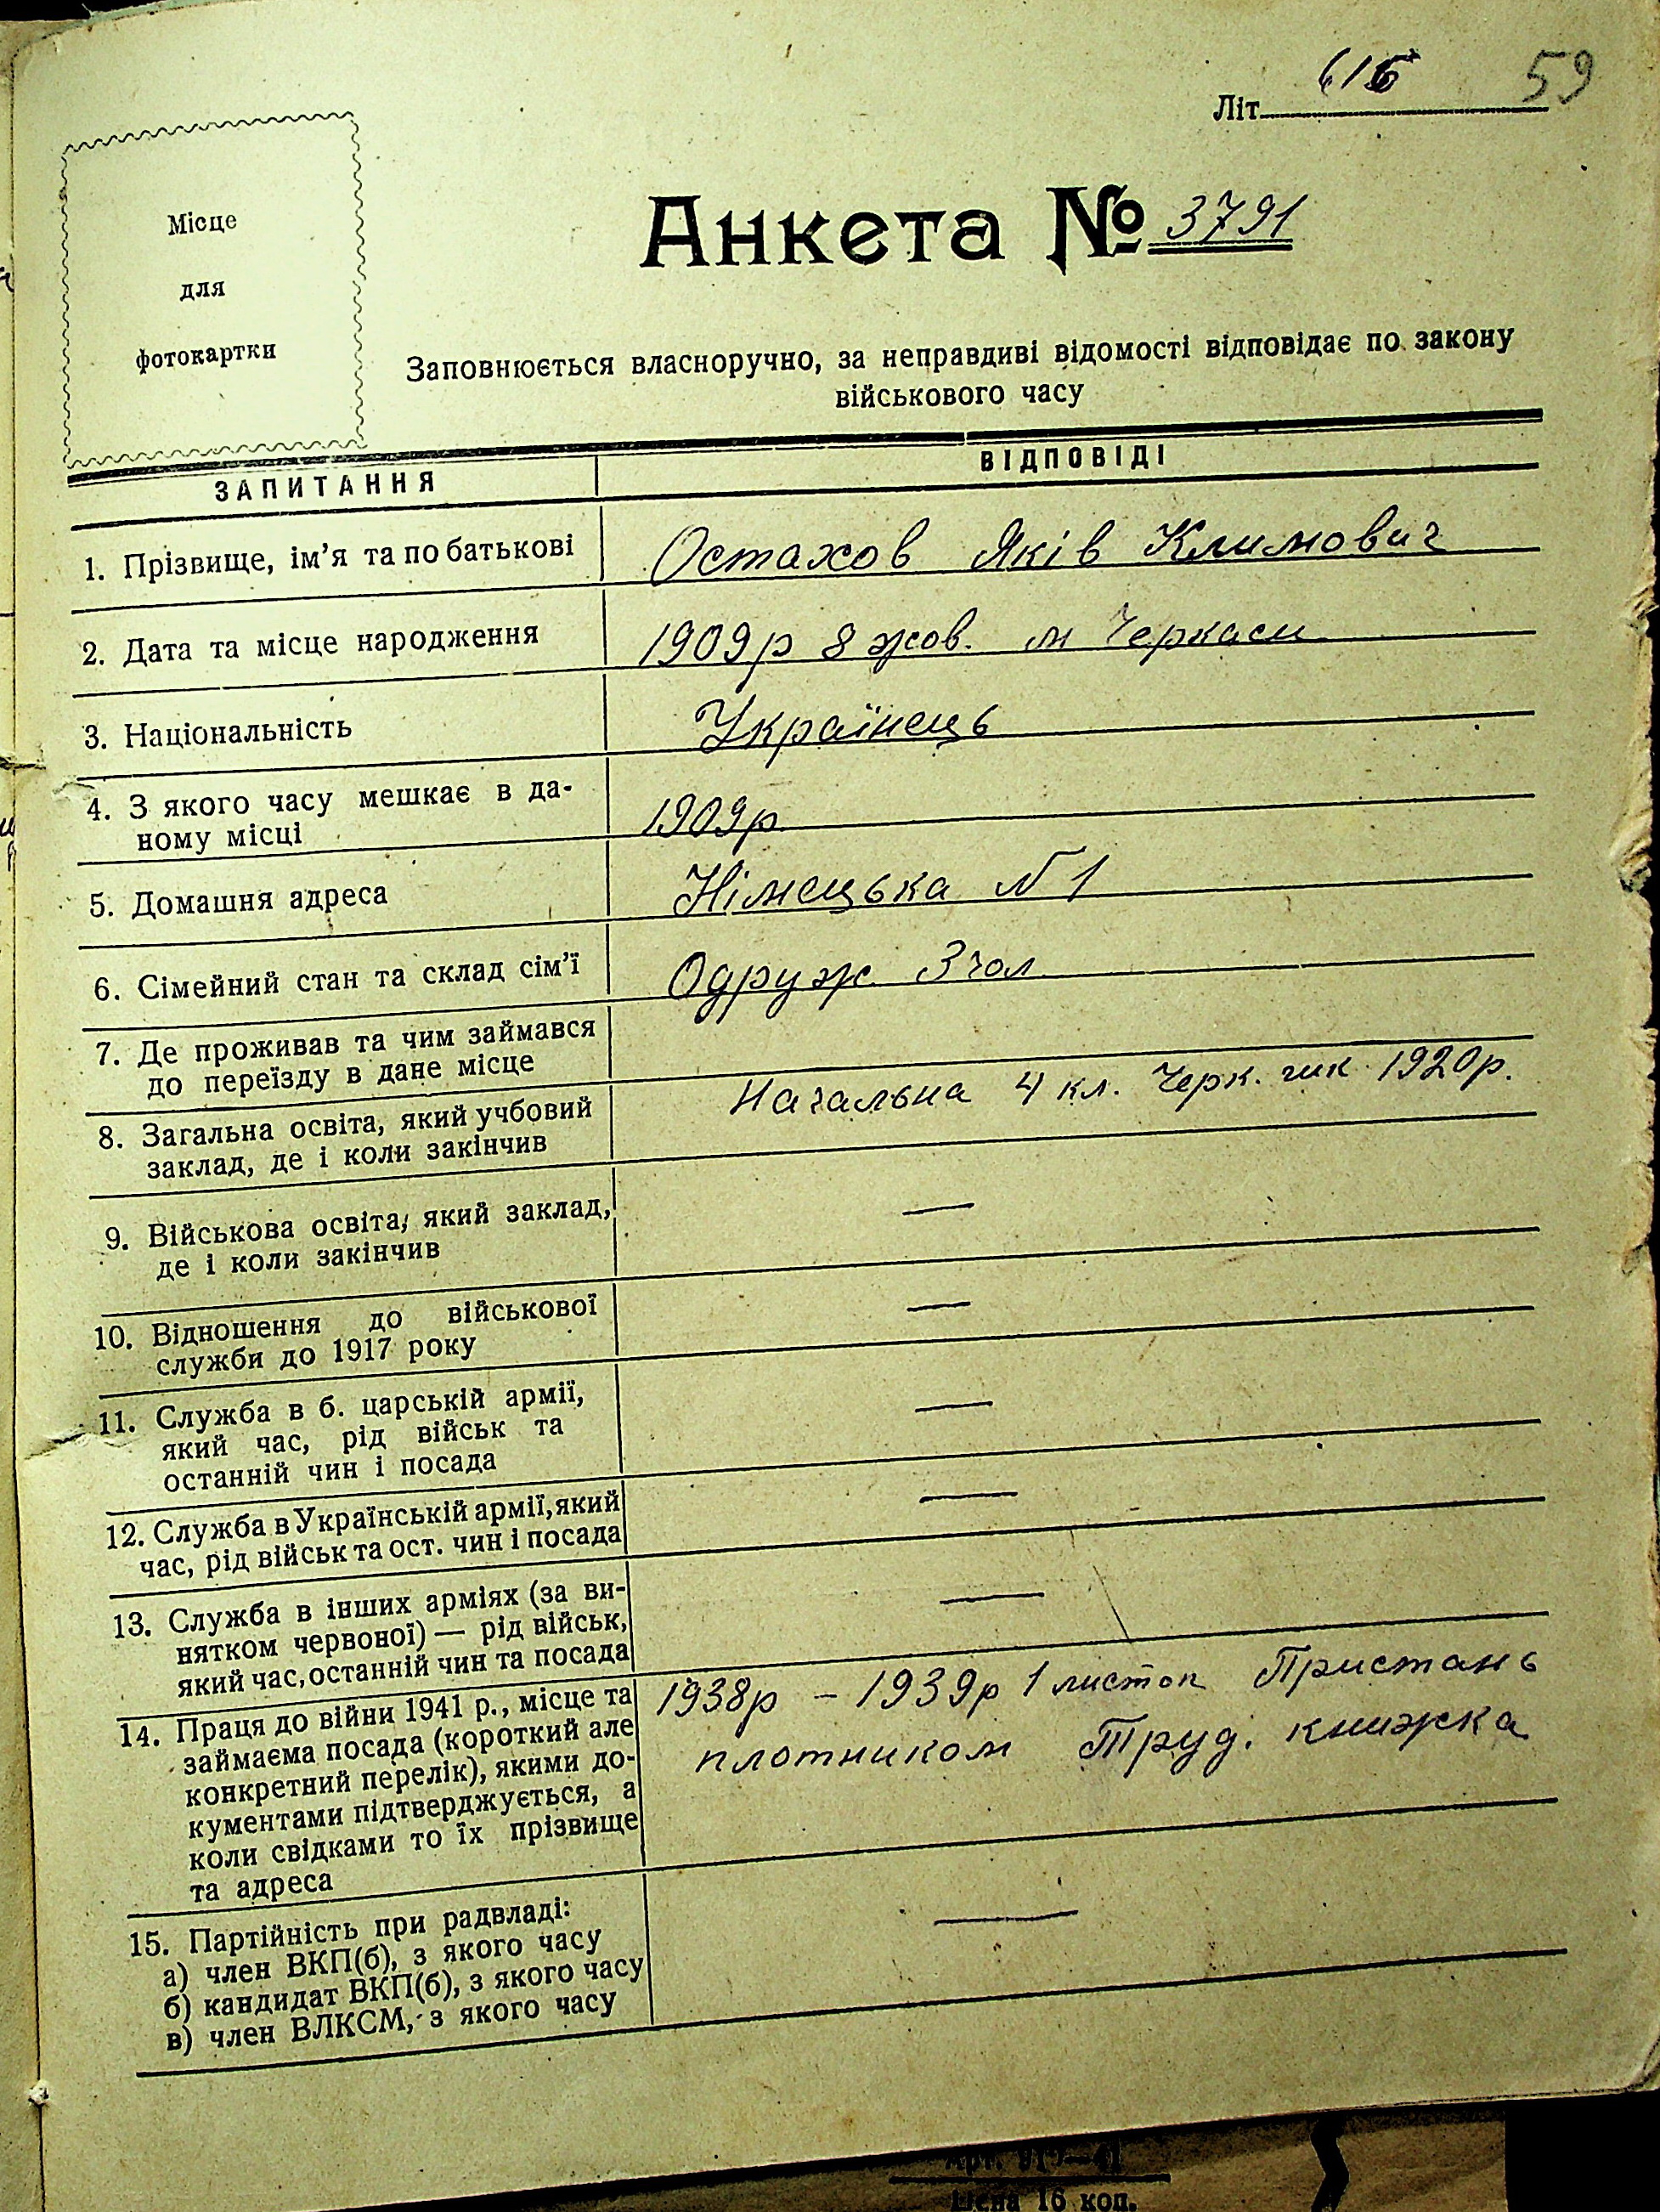 59
Літ. 616
Місце
для
фотокартки
Анкета № 3791
Заповнюється власноручно, за неправдиві відомості відповідає по закону
військового часу
ЗАПИТАННЯ
ВІДПОВІДІ
1. Прізвище, ім’я та по батькові
Остахов Яків Климович
2. Дата та місце народження
1909р 8 жов. м Черкаси
3. Національність
Українець
4. З якого часу мешкає в да-
ному місці
1909р.
5. Домашня адреса
Німецька N 1
6. Сімейний стан та склад сім’ї
Одруж. 3 чол
7. Де проживав та чим займався
до переїзду в дане місце
8. Загальна освіта, який учбовий
заклад, де і коли закінчив
Начальна 4 кл. Черк. 1920р.
9. Військова освіта, який заклад,
де і коли закінчив
—
10. Відношення до військової
служби до 1917 року
—
11. Служба в б. царській армії,
який час, рід військ та
останній чин і посада
—
12. Служба в Українській армії, який
час, рід військ та ост. чин і посада
—
13. Служба в інших арміях (за ви-
нятком червоної) — рід військ,
який час, останній чин та посада
—
14. Праця до війни 1941 р., місце та
займаєма посада (короткий але
конкретний перелік), якими до-
кументами підтверджується, а
коли свідками то їх прізвище
та адреса
1938р – 1939р 1 листоп Пристань
плотником Труд. книжка
15. Партійність при радвладі:
а) член ВКП(б), з якого часу
б) кандидат ВКП(б), з якого часу
в) член ВЛКСМ, з якого часу
—
Цена 16 коп.